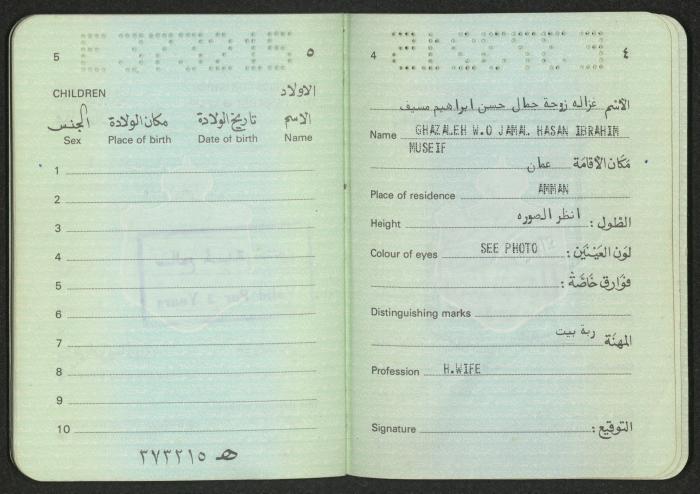 5 ٥
CHILDREN الاولاد
الجنس مكان الولادة تاريخ الولادة الاسم
Sex Place of birth Date of birth Name
1
2
3
4
5
6
7
8
9
10
ھ ٣٧٣٢١٥
4 ٤
الاسم غزاله زوجة جمال حسن ابراهيم مسيف
Name GHAZALEH W.O JAMAL HASAN IBRAHIM
MUSEIF
مكان الاقامة عمان
Place of residence AMMAN
الطول : انظر الصوره
Height
لون العينين :
Colour of eyes SEE PHOTO
فوارق خاصة :
Distinguishing marks
المهنة ربة بيت
Profession H.WIFE
Signature التوقيع :